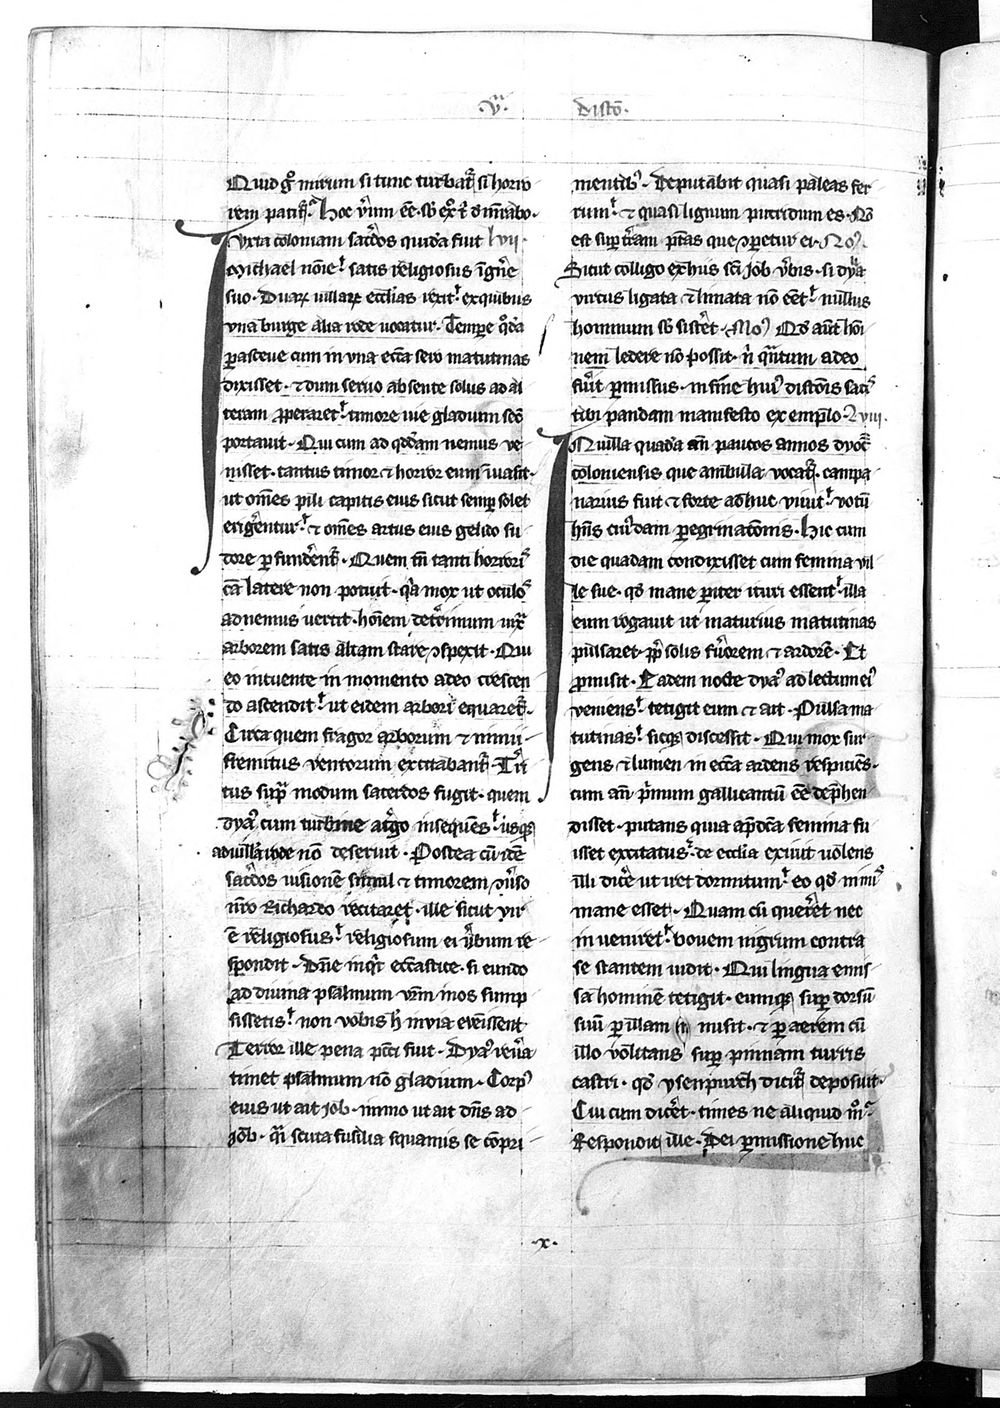 .v. disto.
Quid g̊ mirum si tunc turbat᷒ si horro
rem patit᷒. Hoc v̓um e͞e. sʒ ex̊ t̓ d͞ mirabo.
Iuxta coloniam sac̓dos quida͞ fuit lvii.
Michael no͞ie. satis religiosus i͞ gn̓e
suo. Duaꝝ uillaꝝ eccl̓ias rexit. ex quibus
vna burge alia rode uocatur. Tempe q̊da͞
p̱asceue cum in vna ecc̓a sero matutinas
dixisset. ⁊ dum seruo absente solus ad al
teram ꝓperaret. timore uie gladium seco͞
portauit. Qui cum ad qd̓dam nemus ve
nisset. tantus timor ⁊ horror eum i͞uasit.
ut om̄es pili capitis eius sicut semꝑ solet
erig̓entur. ⁊ om̄es artus eius gelido su
dore ꝑfund̓ent᷒. Quem tn̄ tanti horroris
ca͞ latere non potuit. q̓a mox ut oculos
ad nemus uertit. ho͞iem det̓rimum iux̓
arborem satis altam stare ꝯspexit. Qui
eo intuente in momento adeo crescen
do ascendit. ut eidem arbori equaret᷒.
Circa quem fragor arborum ⁊ nimii
fremitus ventorum excitabant᷒. T̓ri
tus sup̓ modum sacerdos fugit. quem
dya̓ cum turbine at̓go inseque͞s. usqꝫ
ad uilla͞ rode no͞ deseruit. Postea cu͞ ide͞
sac̓dos uisione͞ simul ⁊ timorem ꝯu̓so
n̄ro Richardo recitaret. ille sicut vir
e͞ religiosus. religiosum ei v̓bum re
spondit. Dn̄e inq̓t eccl̓astice. si eundo
ad diuina psalmum vr̄m in os sump
sissetis. non vobis h̓ in uia euenissent
Terror ille pena pcc̓i fuit. Dya̓ reu̓a
timet psalmum no͞ gladium. Corp̓
eius ut ait iob. immo ut ait dn̄s ad
Iob. q̓si scuta fusilia squamis se co͞pri
mentib̓. Deputabit quasi paleas fer
rum. ⁊ quasi lignum putridum es. No͞
est suꝑ t̓ram p̄tas que ꝯꝑetur ei. No̓.
Sicut colligo ex hiis sc̄i Job v̓bis. si dya̓
virtus ligata ⁊ limata no͞ e͞et. nullus
hominum sʒ sist̓et. Mo̓ Qd̓ aut̄ ho͞i
nem ledere no͞ possit. n̓ q̓ntum a deo
fu̓it ꝑmissus. in fine hui̓ disto͞nis sacis̓
tibi pandam manifesto exemplo. lviii.
In uilla quada͞ an̄ paucos annos dyoc̓
coloniensis que ambula vocat᷒. campa
narius fuit ⁊ forte adhuc viuit. votu͞
hn̄s cui̓dam ꝑegrinaco͞nis. Hic cum
die quadam condixisset cum femina vil
le sue. qd̓ mane ꝑiter ituri essent. illa
eum rogauit ut maturius matutinas
pulsaret. ꝓp̓ solis fu̓orem ⁊ ardore͞. Et
ꝓmisit. Eadem nocte dya̓ ad lectum ei̓
veniens. tetigit eum ⁊ ait. Pulsa ma
tutinas. sicqꝫ discessit. Qui mox sur
gens ⁊ lumen in ecc̓a ardens respicie͞s.
cum an̄ p̓mum gallicantu͞ e͞e dep̓hen
disset. putans quia a p̄dc̓a femina fu
isset excitatus. de eccl̓ia exiuit uolens
illi dic̓e ut iret dormitum. eo qd̓ nimis̓
mane esset. Quam cu͞ quer̓et nec
inueniret. bouem nigrum contra
se stantem uidit. Qui lingua emis
sa homine͞ tetigit. eumqꝫ suꝑ dorsu͞
suu͞ ꝑ illam misit. ⁊ ꝑ aerem cu͞
illo volitans suꝑ pinnam turris
castri. qd̓ ysenpurch dicit᷒ deposuit.
Cui cum dic̓et. times ne aliquid mo̓.
Respondit ille. Dei ꝑmissione huc
.x.